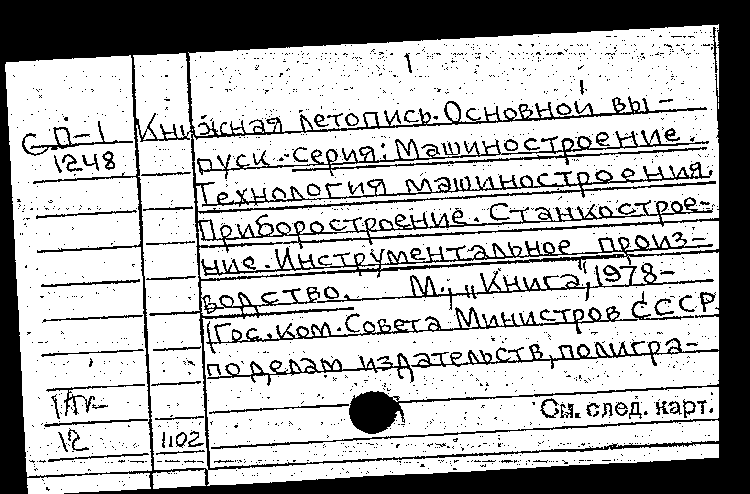 1
СП-1
1248
Книжная летопись. Основной вы-
пуск.-Серия: Машиностроение.
Технология машиностроения.
Приборостроение. Станкострое-
ние. Инструментальное произ-
водство. М., „Книга", 1978-
(Гос. ком. Совета Министров СССР
по делам издательств, полигра-
См. след. карт.
12
1102